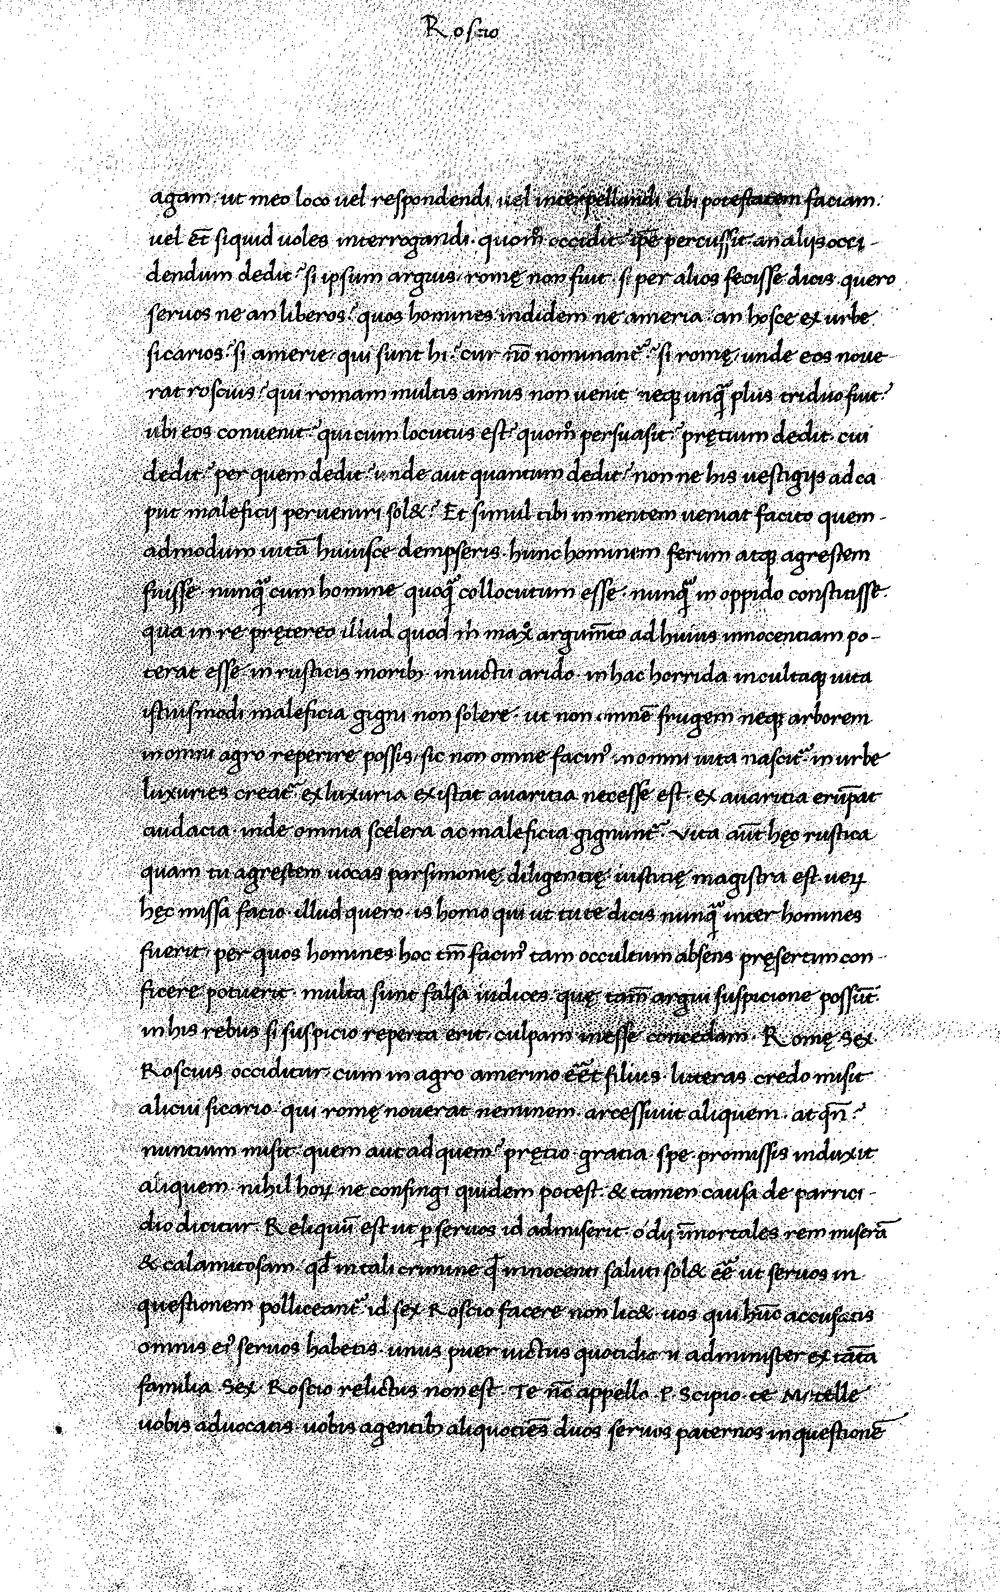 Roscio
agam. ut meo loco uel respondendi, uel interpellandi tibi potestatem faciam.
uel et̄ siquid uoles interrogandi. quom̊ occidit. ip̄e percussit. an aliis occi-
dendum dedit? si ipsum arguis. romę non fuit. si per alios fecisse dicis. quero
seruos ne an liberos? quos homines. indidem ne ameria. an hosce ex urbe
sicarios? si amerię, qui sunt hi? cur nō nominant᷑? si romę, unde eos noue
rat roscius? qui romam multis annis non uenit neqꝫ unq̃ plus triduo fuit?
ubi eos conuenit? qui cum locutus est? quom̊ persuasit? pręcium dedit. cui
dedit? per quem dedit? unde aut quantum dedit? non ne his uestigiis ad ca
put maleficii perueniri sol&? Et simul tibi in mentem ueniat facito quem-
admodum uitā huiusce dempseris. hunc hominem ferum atqꝫ agrestem
fuisse. nunq̃ cum homine quoq̃ collocutum esse. nunq̃ in oppido constitisse.
qua in re prętereo illud quod m̊ max̊ argum̄to ad huius innocentiam po-
terat esse. in rusticis moribꝫ. in uictu arido. in hac horrida incultaqꝫ uita
istiusmodi maleficia gigni non solere. ut non omnē frugem neqꝫ arborem
in omni agro reperire possis, sic non omne facin᷒ in omni uita nascit᷑. in urbe
luxuries creat᷑. ex luxuria existat auaritia necesse est. ex auaritia erūpat
audacia. inde omnia scelera ac maleficia gignunt᷑. Vita aūt hęc rustica
quam tu agrestem uocas parsimonię, diligentię, iustitię magistra est. ueꝝ
hęc missa facio. illud quero. is homo qui ut tute dicis nunq̃ inter homines
fuerit, per quos homines hoc tm̄ facin᷒ tam occultum absens pręsertim con-
ficere potuerit. multa sunt falsa iudices. quę tam̄ argui suspicione possūt.
in his rebus si suspicio reperta erit, culpam inesse concedam. Romę Sex
Roscius occiditur, cum in agro amerino eēt filius. litteras credo misit
alicui sicario. qui romę nouerat neminem. arcessiuit aliquem. at qn̄?
nuntium misit. quem aut ad quem? pręcio. gratia. spe. promissis induxit
aliquem. nihil hoꝝ ne confingi quidem potest. & tamen causa de parrici-
dio dicitur. Reliquū est ut ꝑ seruos id admiserit. o dii īmortales rem miserā
& calamitosam. qđ in tali crimine q̄ innocenti saluti sol& eē ut seruos in
questionem polliceant᷑ id sex Roscio facere non lic&. uos qui hūc accusatis
omnis ei᷒ seruos habetis. unus puer uictus quotidiani administer ex tāta
familia Sex. Roscio relictus non est. Te nc̄ appello P. Scipio. te Metelle
uobis aduocatis. uobis agentibꝫ aliquotiēs duos seruos paternos in questionē